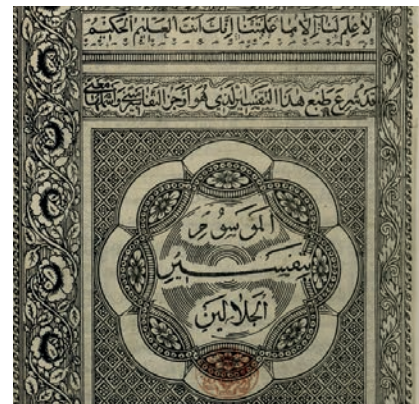 لا علم لنا إلا ما علمتنا إنك أنت العليم الحكيم
قد شرع طبع هذا التفسير الذي هو أوجز
الموسوم
بتفسير
الجلالين